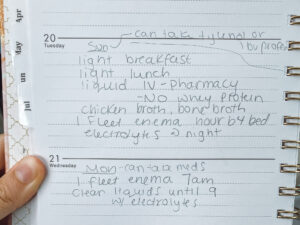 Apr
May
un
Jul
can take tylenol or
20
Tuesday
Sun
light breakfast
light lunch
liquid IV - Pharmacy
- No whey protein
chicken broth, bone broth
1 fleet enema hour b4 bed
electrolytes @ night
21
Wednesday
Mon - meds
1 fleet enema 7am
clear liquids until 9
w/ electrolytes